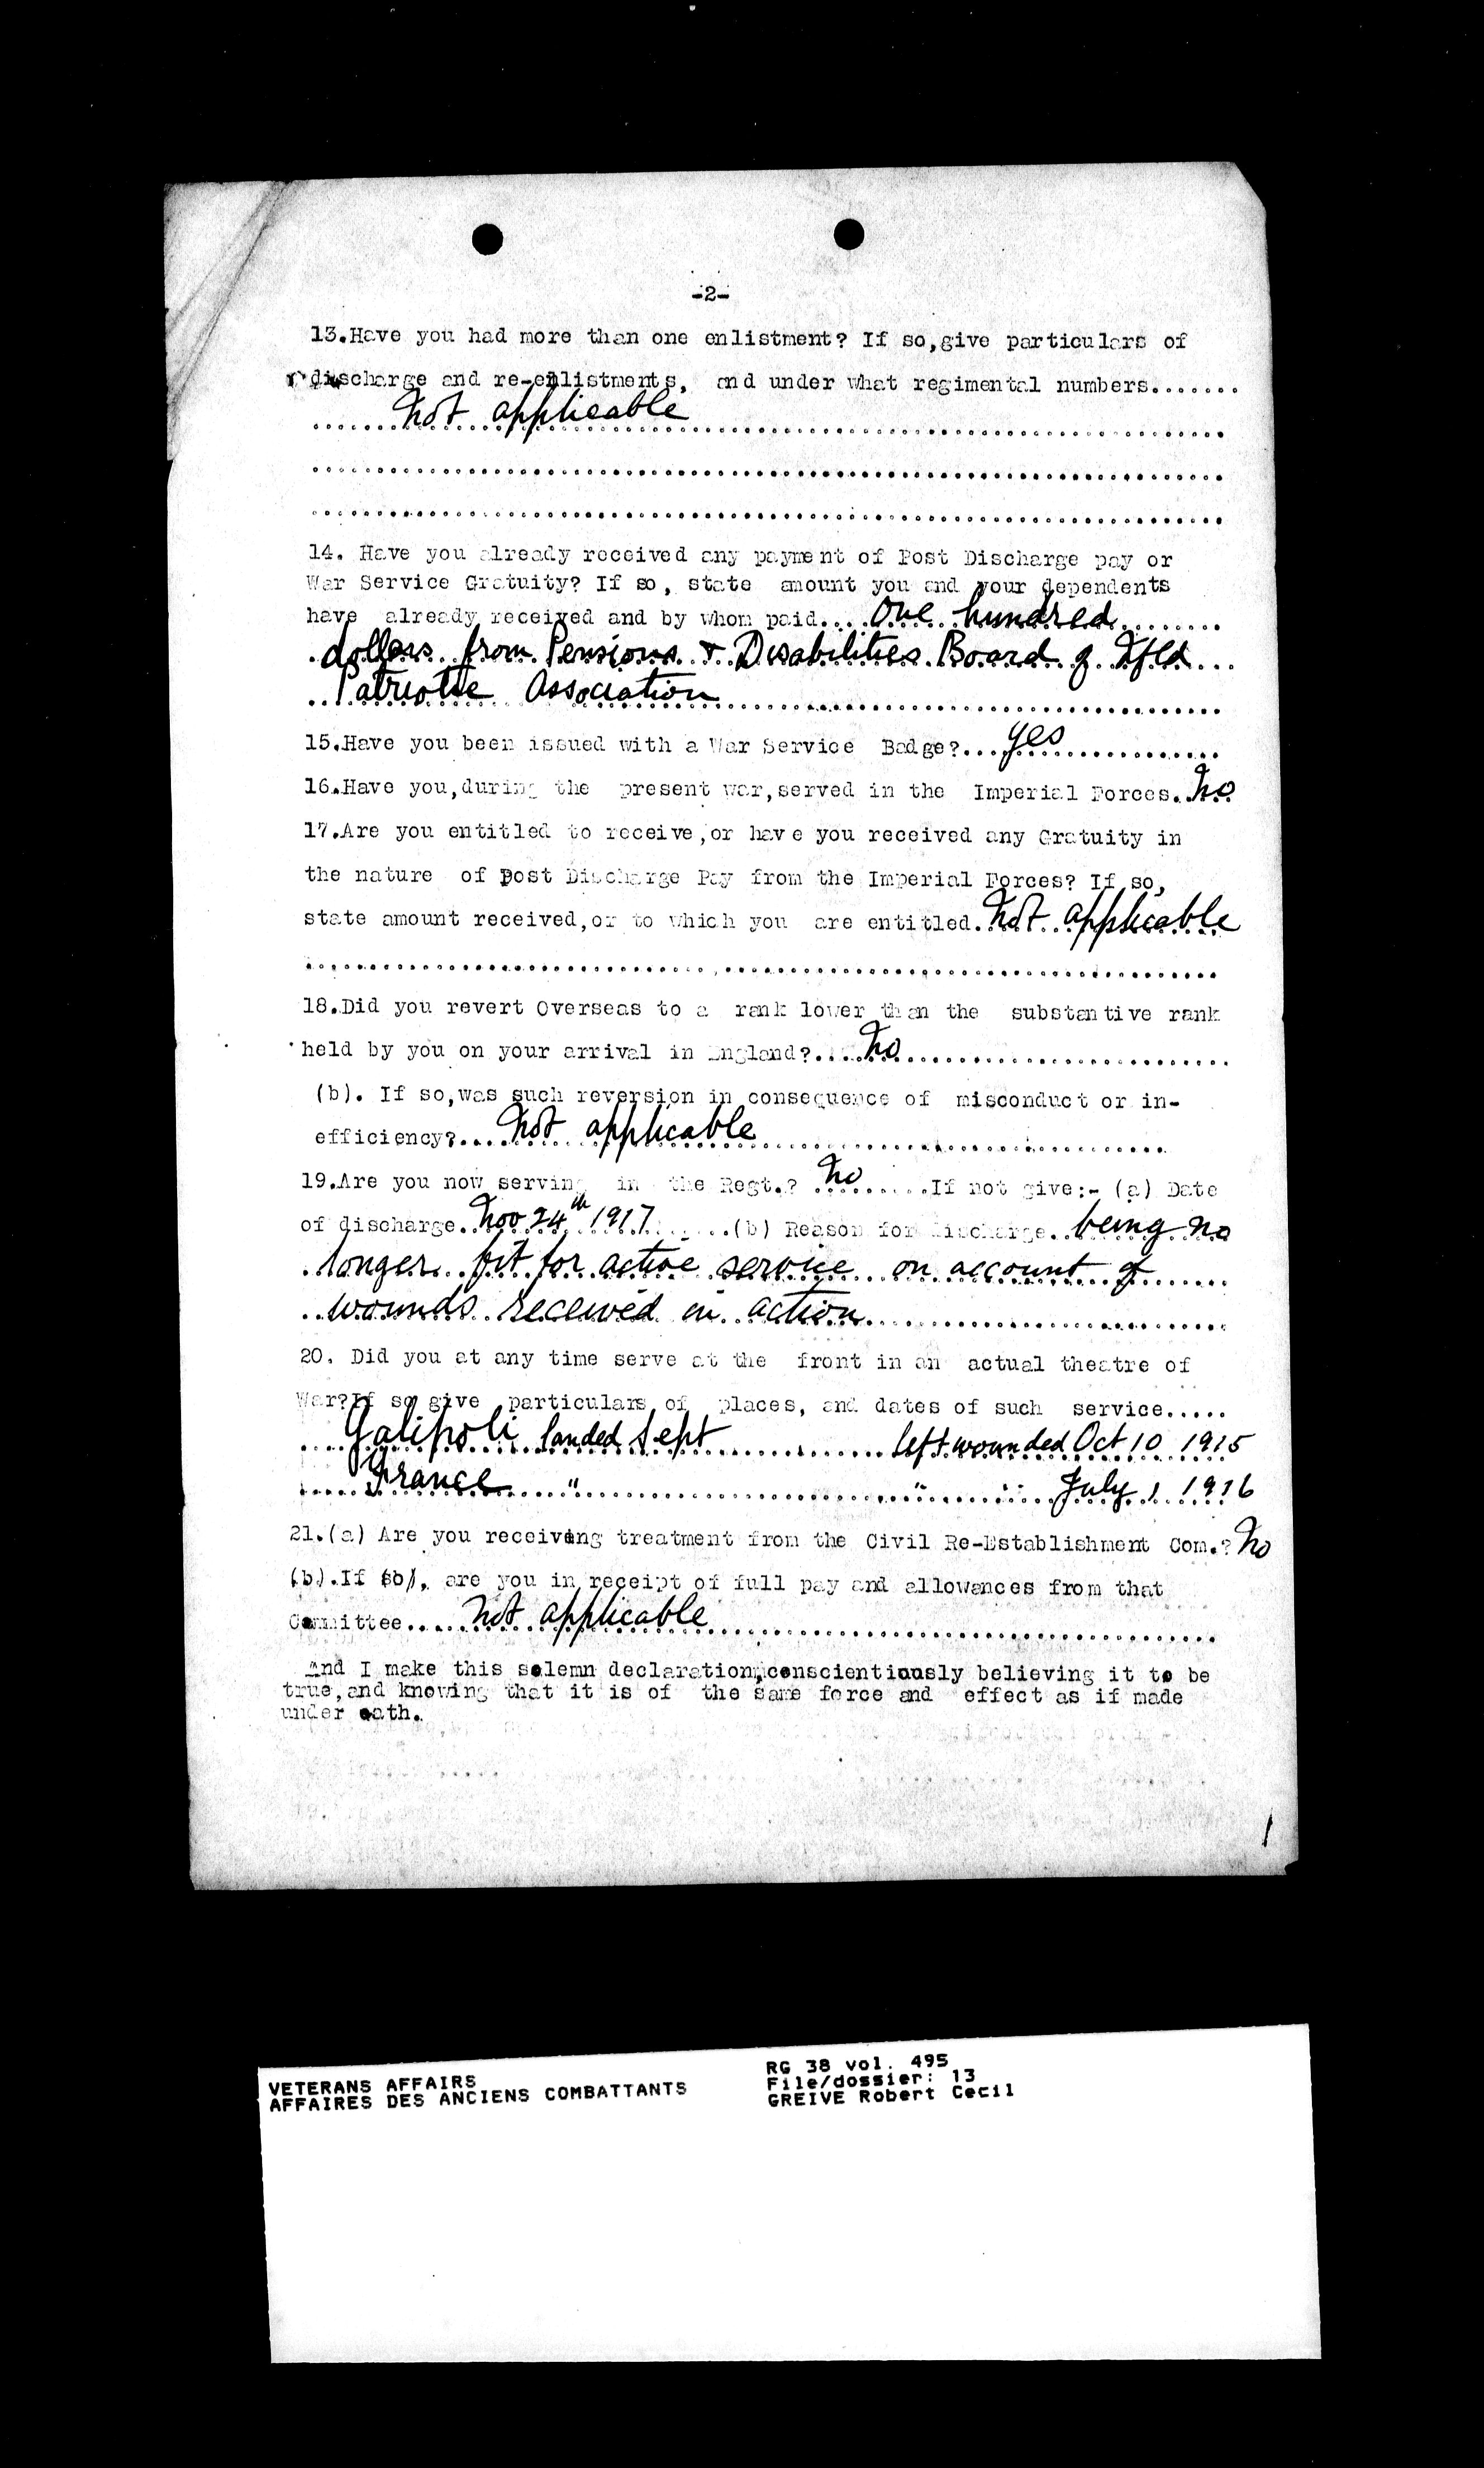 -2-
13.Have you had more than one enlistment? If so,give particulars of
discharge and re-enlistments, and under what regimental numbers.......
......Not applicable......
14. Have you already received any payment of Post Discharge pay or
War Service Gratuity? If so, state amount you and your dependents
have already received and by whom paid....One hundred........
.dollars from Pensions & Disabilities Board of Nfld...
..Patriotic Association......
15.Have you been issued with a War Service Badge?...yes......
16.Have you,during the present war,served in the Imperial Forces..No
17.Are you entitled to receive,or have you received any Gratuity in
the nature of Post Discharge Pay from the Imperial Forces? If so,
state amount received,or to which you are entitled.Not applicable
18.Did you revert Overseas to a rank lower than the substantive rank
held by you on your arrival in England?....No......
(b). If so,was such reversion in consequence of misconduct or in-
efficiency?....Not applicable......
19.Are you now serving in the Regt.? .No......If not give:- (a) Date
of discharge..Nov 24th 1917......(b) Reason for discharge..being no
.longer fit for active service on account of......
..wounds received in action......
20. Did you at any time serve at the front in an actual theatre of
War?If so give particulars of places, and dates of such service.....
....Galipoli landed Sept......left wounded Oct 10 1915
.....France...."......"......July 1 1916
21.(a) Are you receiving treatment from the Civil Re-Establishment Com.? No
(b).If so, are you in receipt of full pay and allowances from that
Committee.....Not applicable......
And I make this solemn declaration,conscientiously believing it to be
true,and knowing that it is of the same force and effect as if made
under oath.
VETERANS AFFAIRS
AFFAIRES DES ANCIENS COMBATTANTS
RG 38 vol. 495
File/dossier: 13
GREIVE Robert Cecil